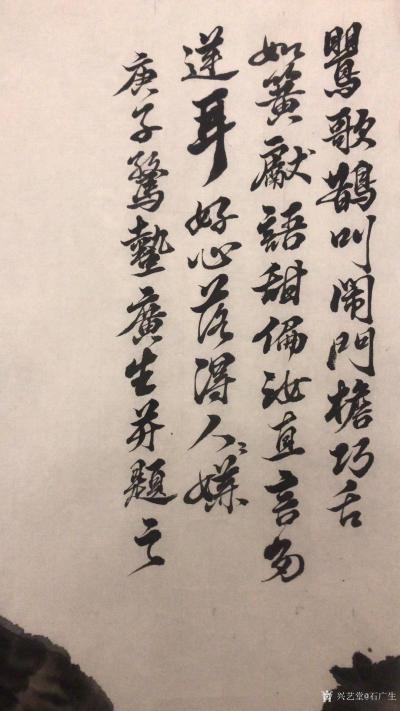 鸎歌鵲叫閙門檐巧舌
如簧獻語甜偏汝直言多
逆耳好心落得人人嫌
庚子驚蟄廣生並題之
兴艺堂@石广生